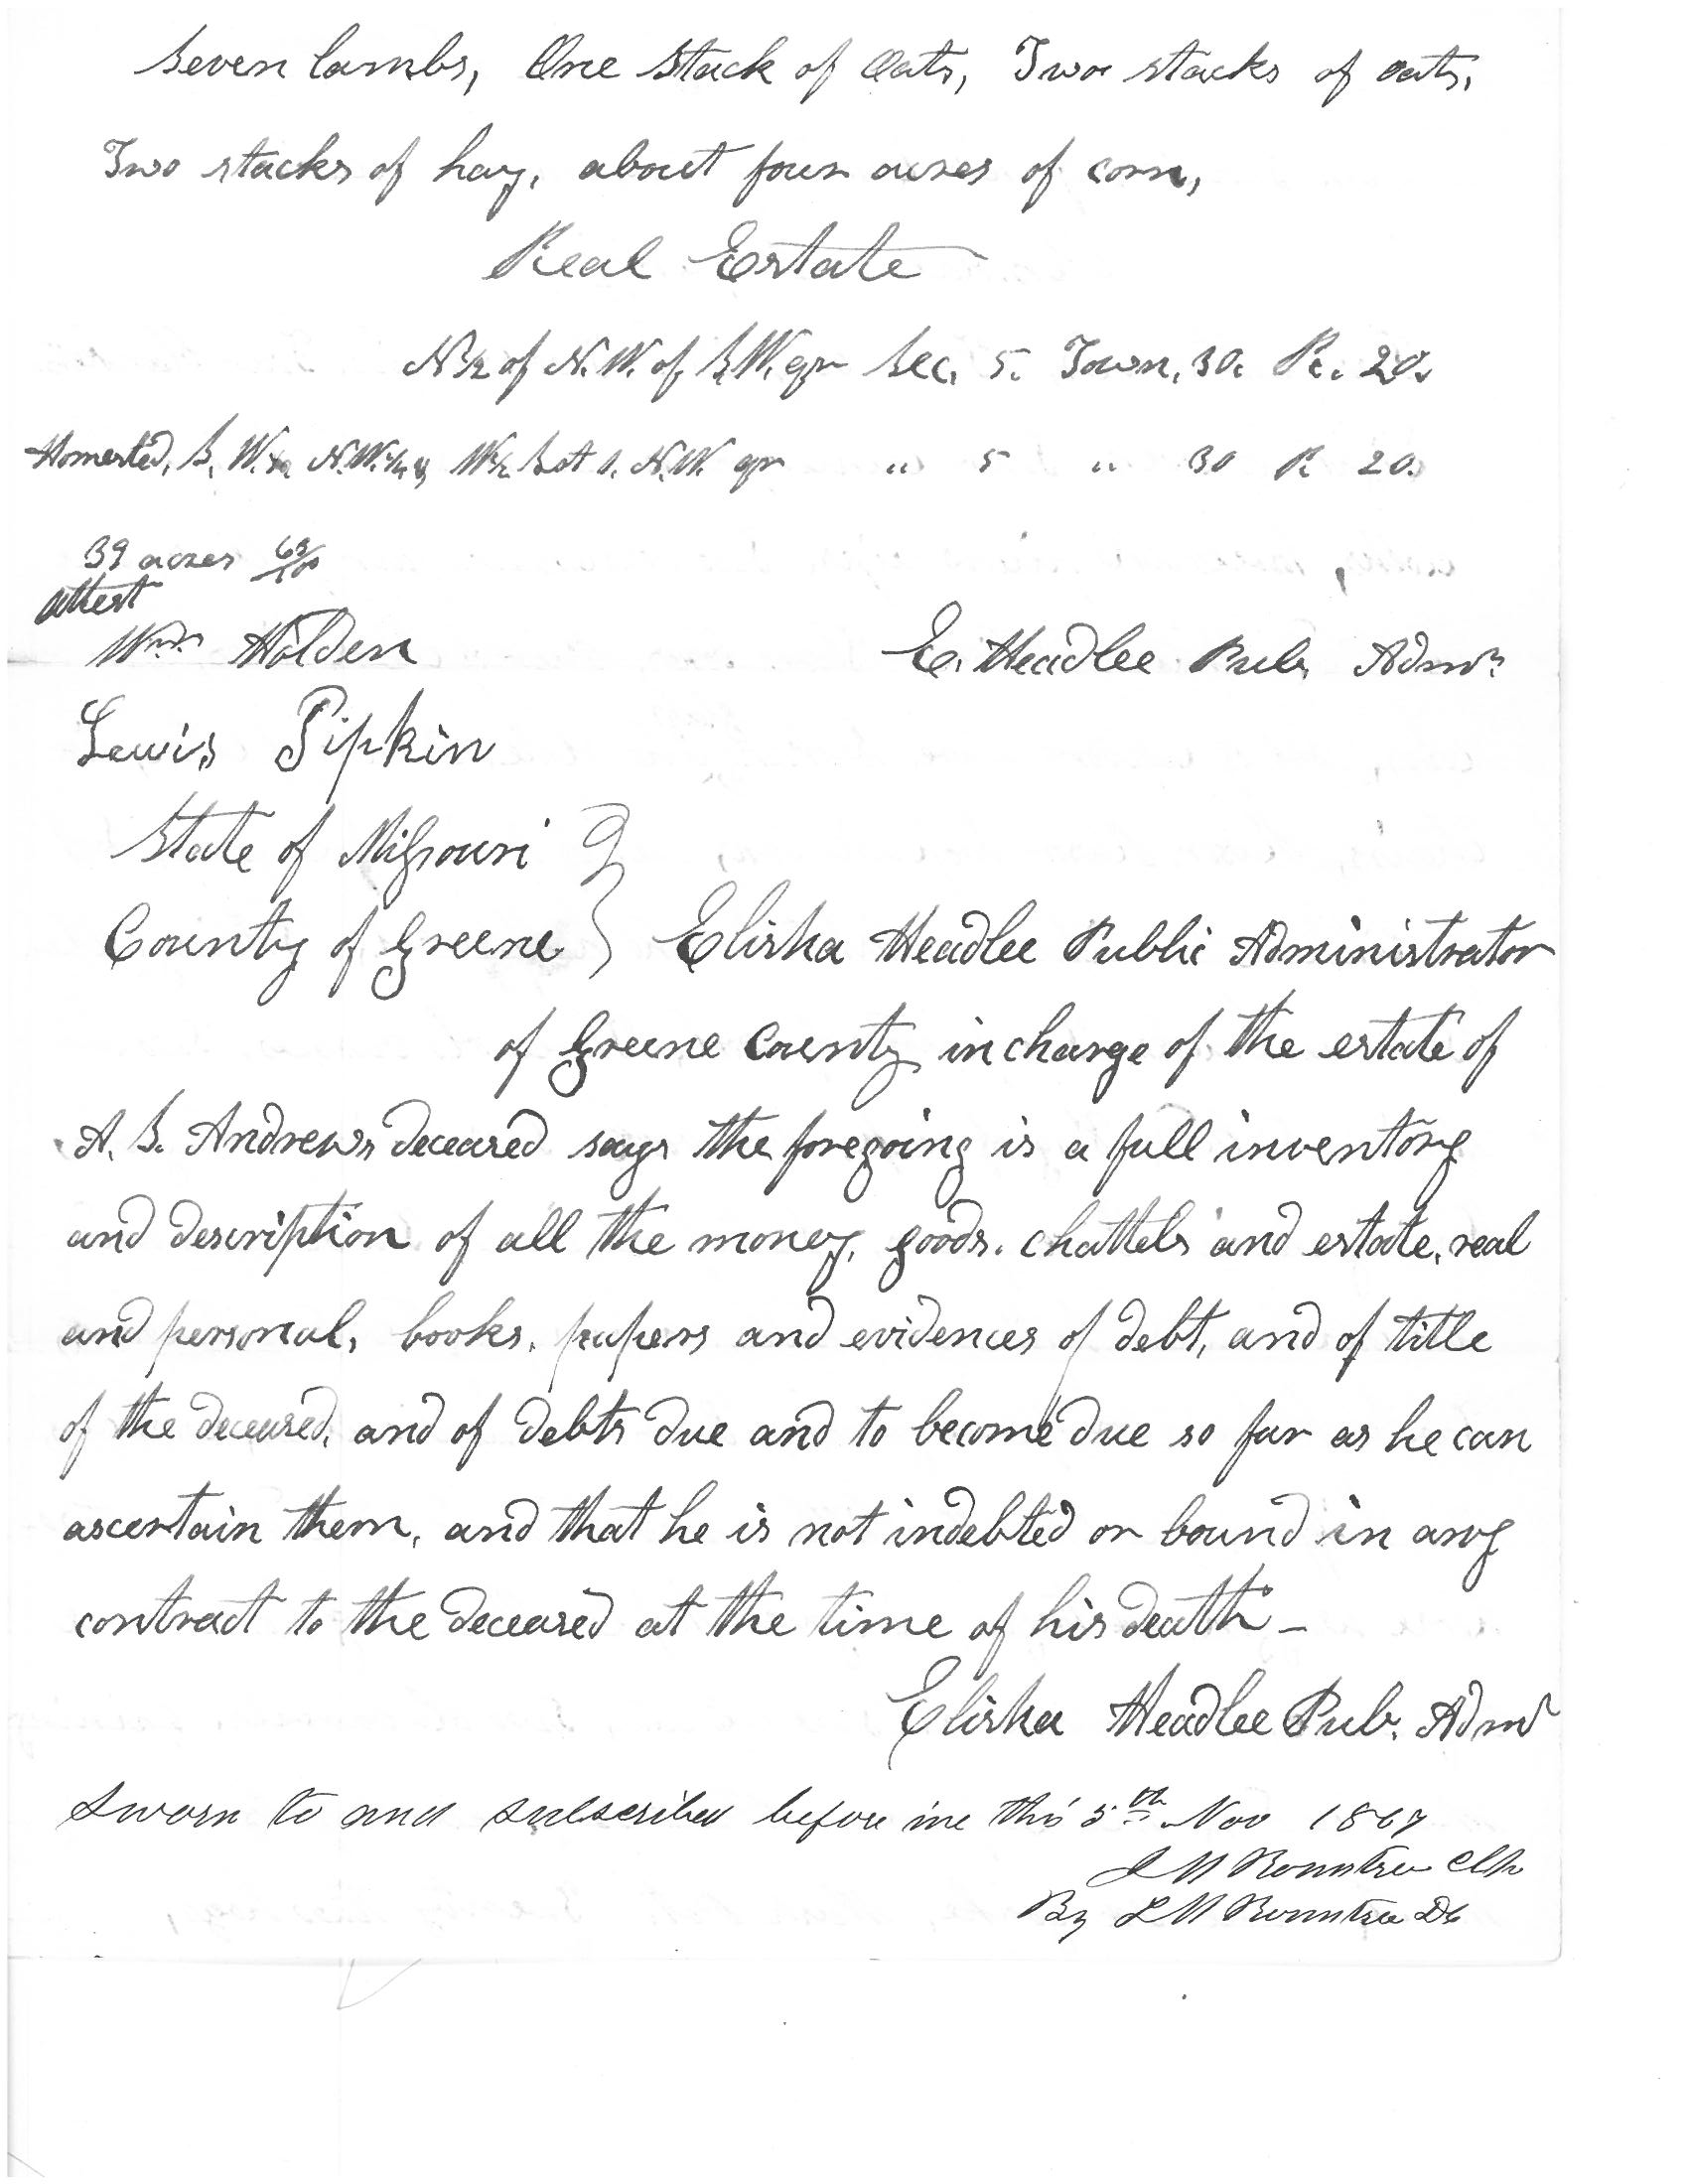 Seven lambs, One Stack of Oats, Two stacks of oats,
Two stacks of hay, about four acres of corn,
Real Estate
N½ of N.W. of S.W. qr Sec. 5. Town. 30. R. 20.
Homested, S. W. N.W. & W½ Lot 1. N.W. qr " 5 " 30 R 20.
39 acres 63/100
attest
Wm. Holden
E. Headlee Pub. Admr.
Lewis Pipkin
State of Missouri }
County of Greene } Elisha Headlee Public Administrator
of Greene County in charge of the estate of
A. S. Andrews deceased says the foregoing is a full inventory
and description of all the money, goods. chattels and estate, real
and personal, books, papers and evidences of debt, and of title
of the deceased, and of debts due and to become due so far as he can
ascertain them, and that he is not indebted or bound in any
contract to the deceased at the time of his death –
Elisha Headlee Pub. Admr
Sworn to and subscribed before me this 5th Nov 1867
J M Rountree Clk
By L M Rountree DC